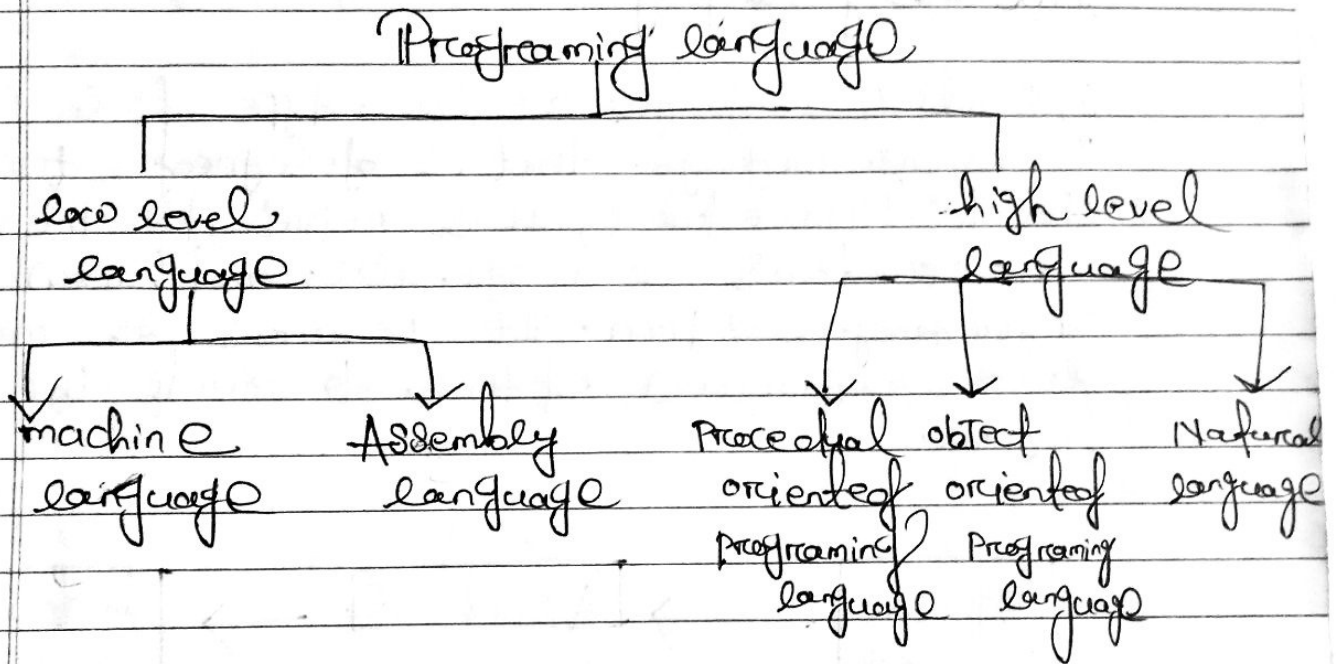 Programing language
low level
language
high level
language
machine
language
Assembly
language
Procedual
oriented
programing
language
object
oriented
Programing
language
Natural
language